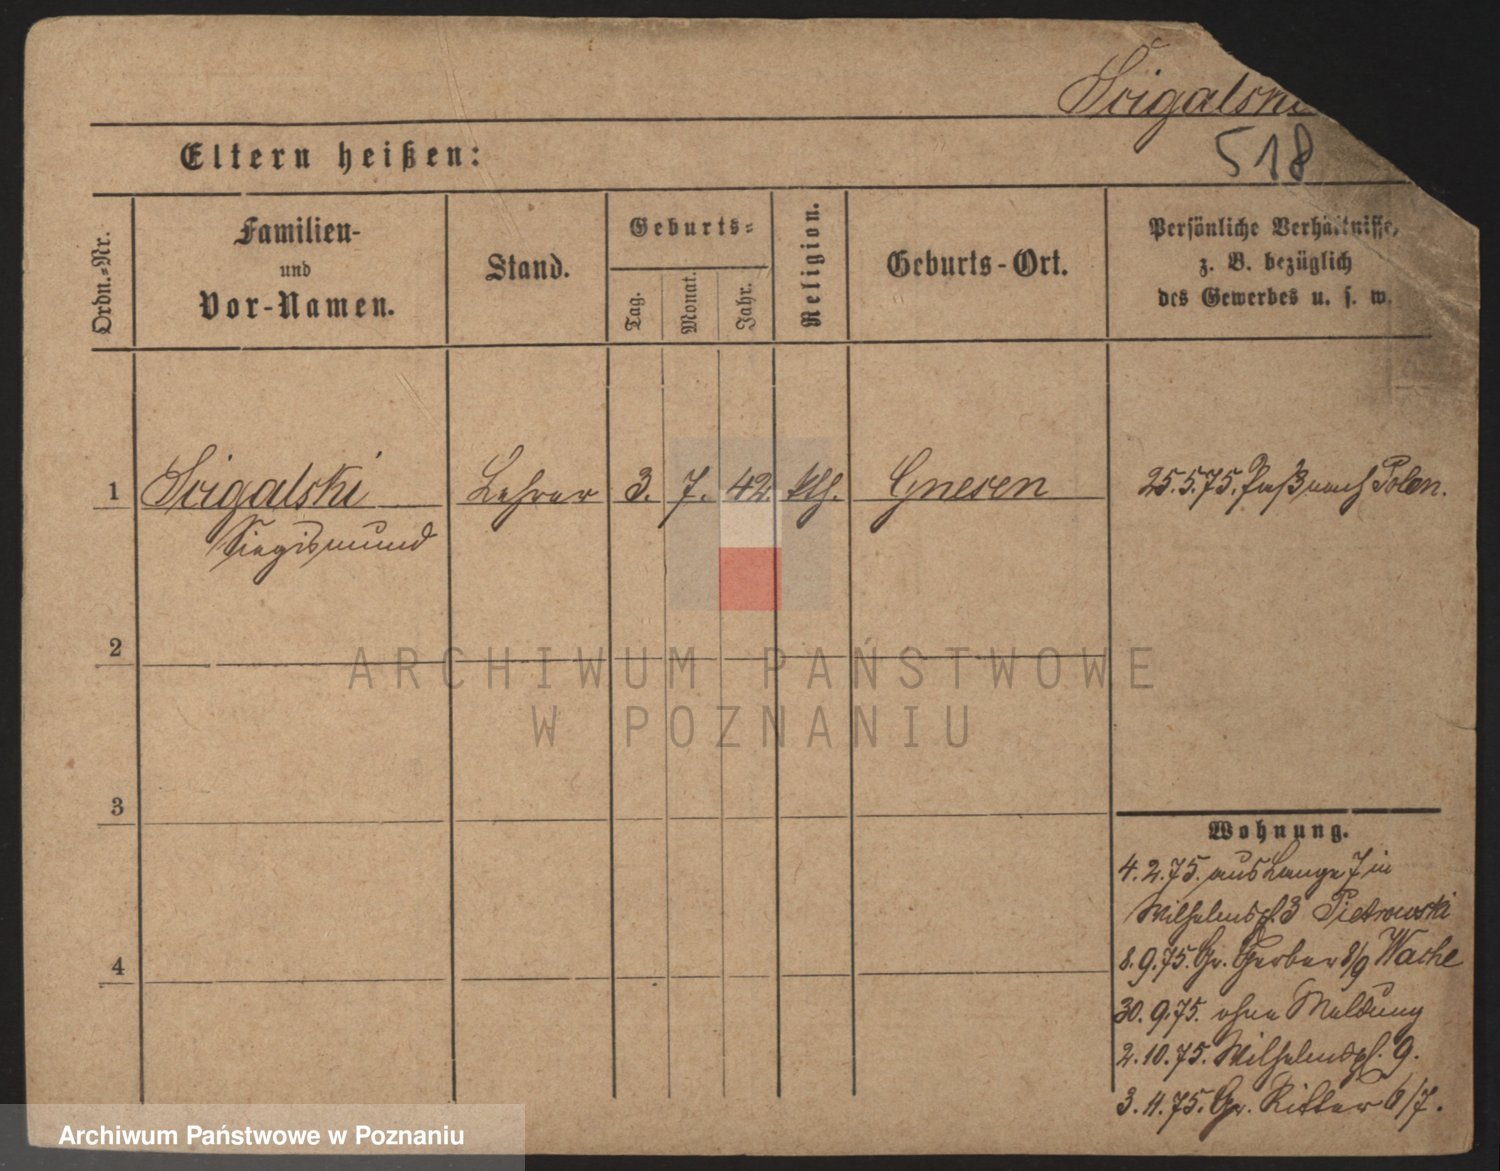 Scigalski
518
Eltern heißen:
Ordn.-Nr.
Familien-
und
Vor-Namen.
Stand.
Geburts-
Tag.
Monat.
Jahr.
Religion.
Geburts-Ort.
Persönliche Verhältnisse,
z. B. bezüglich
des Gewerbes u. s. w.
1 Scigalski Lehrer 3. 7. 42 kth. Gnesen 25.5.75. Paß nach Polen.
Siegismund
2
3
4
Wohnung.
4.2.75. aus Lange 7 in
Wilhelmspl. 3 Pietrowski
8.9.75. Gr. Gerber 8/9 Wache
30.9.75. ohne Meldung
2.10.75. Wilhelmspl. 9.
3.11.75. Gr. Ritter 6/7.
ARCHIWUM PAŃSTWOWE
W POZNANIU
Archiwum Państwowe w Poznaniu